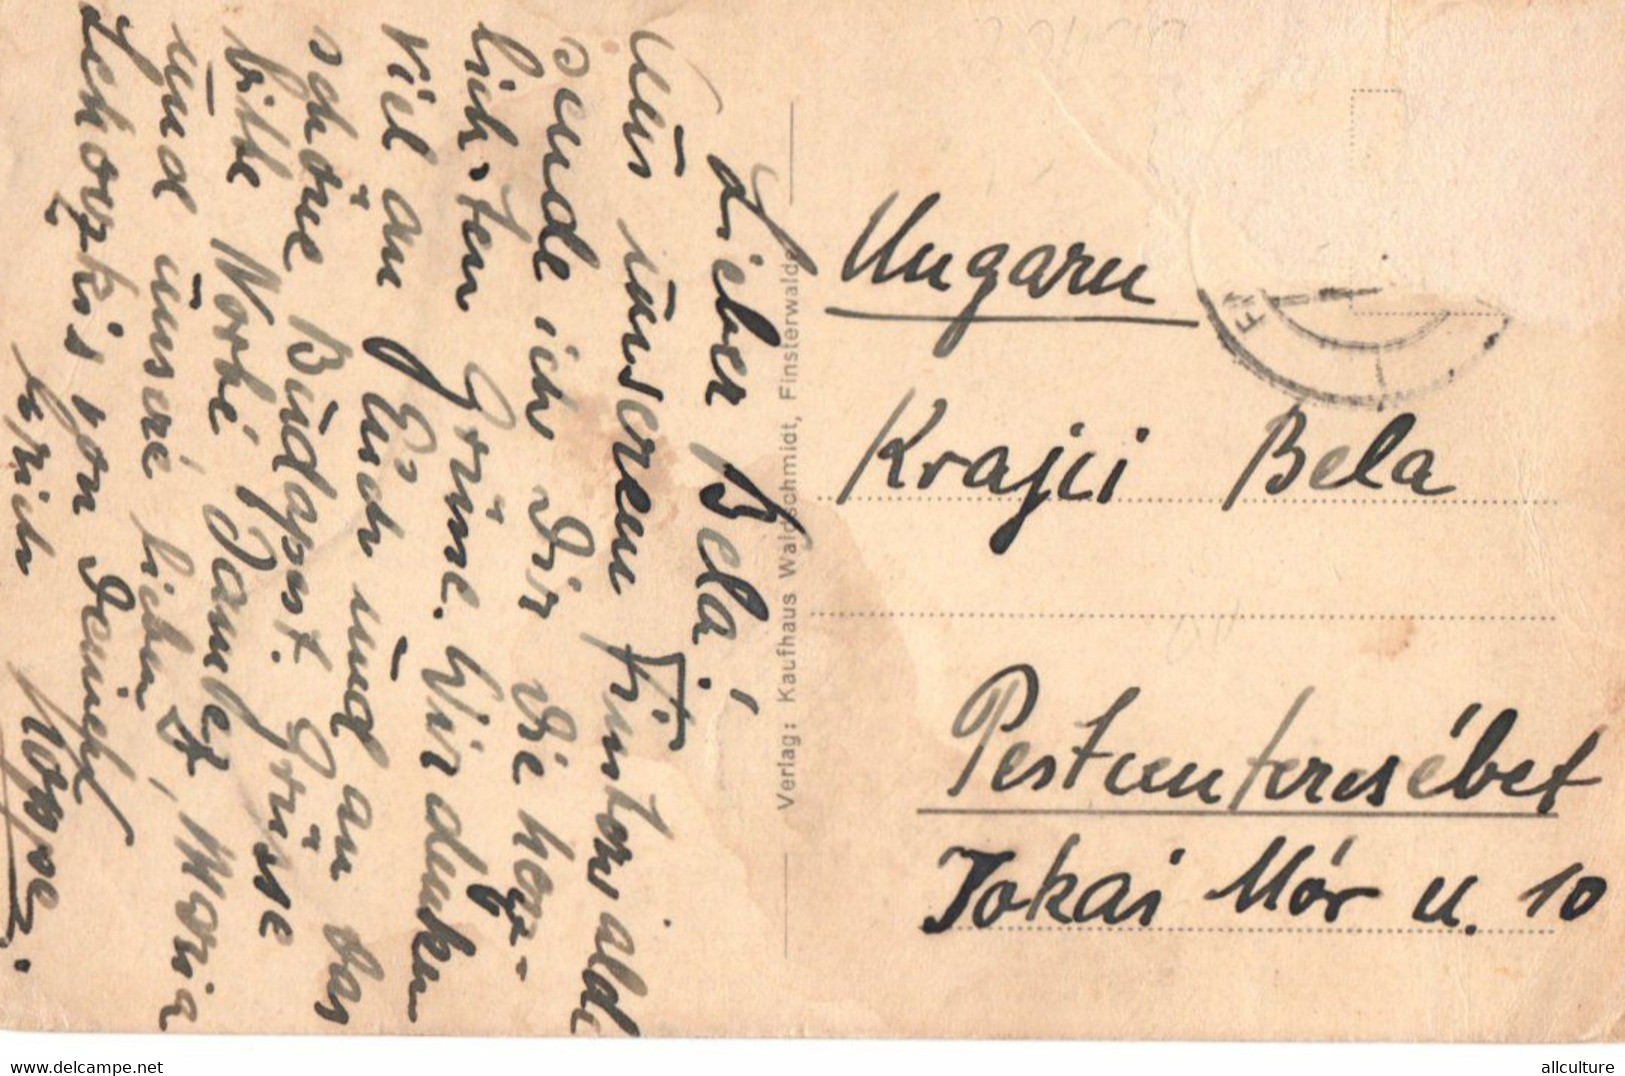 Lieber Bela!
Aus unserem Finsterwalde
sende ich Dir die herz-
lichsten Grüsse. Wir denken
viel an Euch und an das
schöne Budapest. Grüsse
bitte Norbi
und unsere lieben Maria
von Deinem
Erich Koppe.
Verlag: Kaufhaus Waldschmidt, Finsterwalde
Ungarn
Krajci Bela
Pestszenterzsébet
Jokai Mór u. 10
www.delcampe.net
allculture